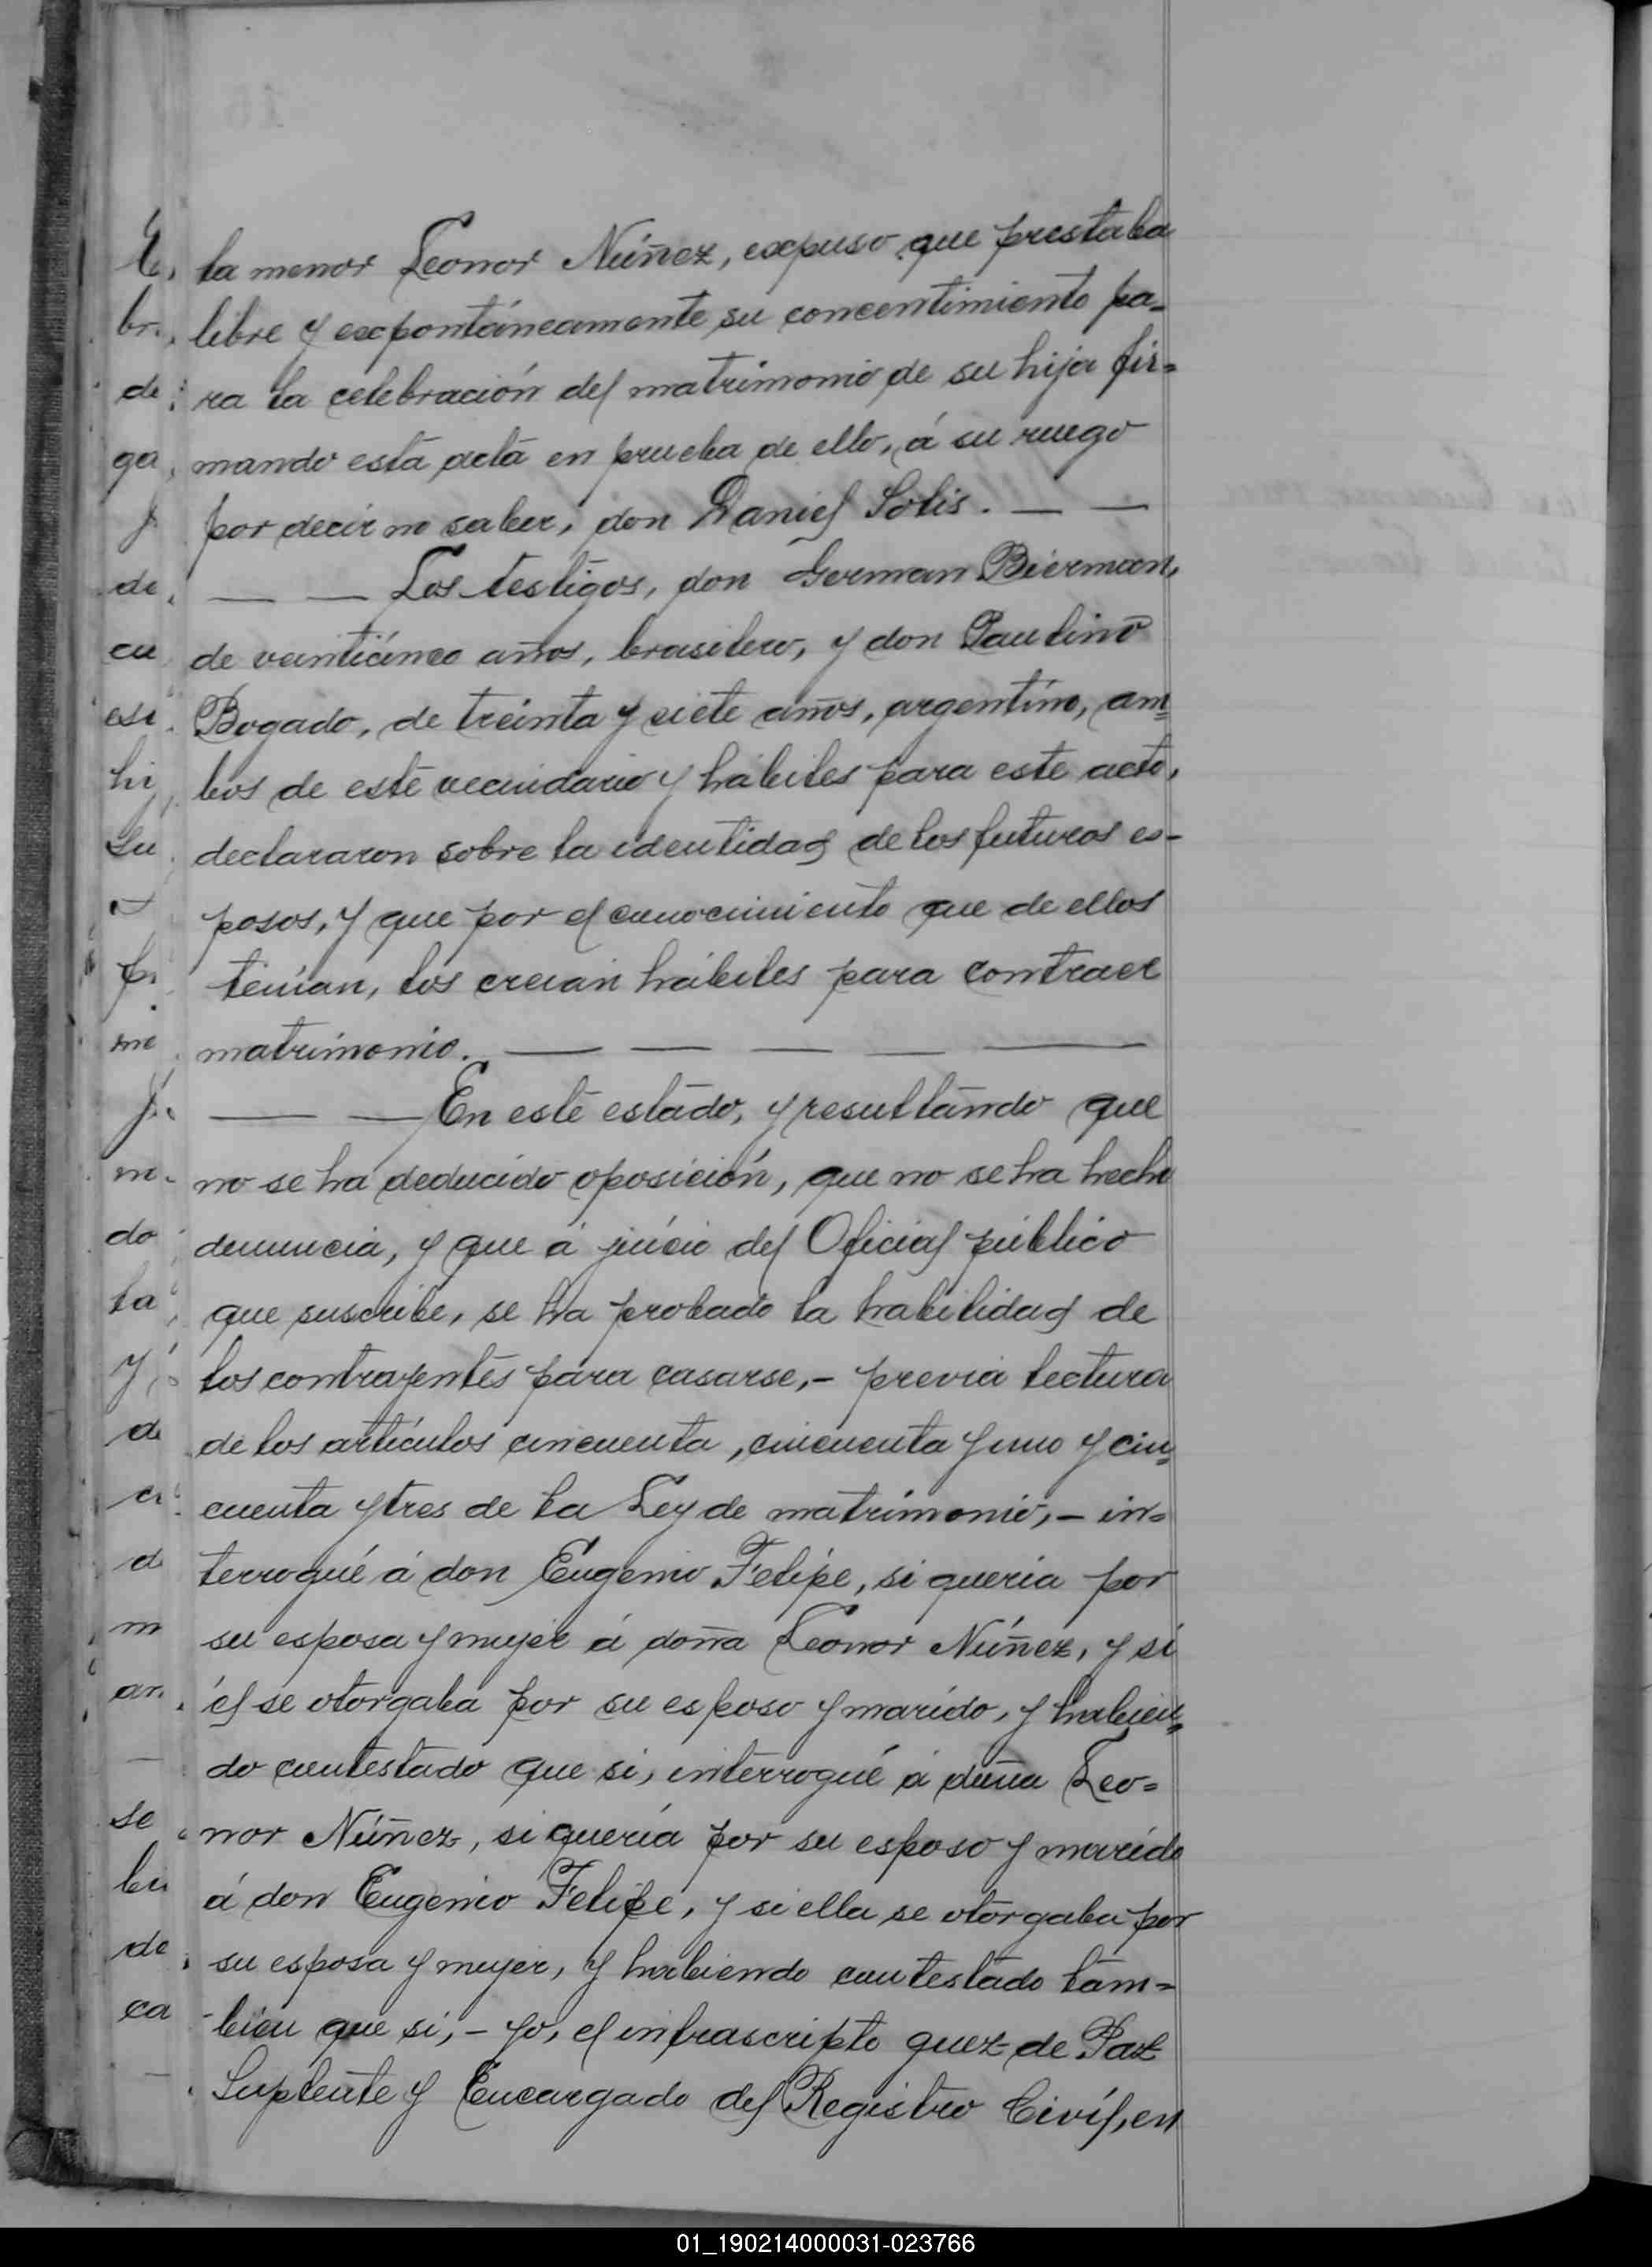 la menor Leonor Núñez, expuso que prestaba
libre y expontáneamente su concentimiento pa-
ra la celebración del matrimonio de su hija fir-
mando esta acta en prueba de ello, á su ruego
por decir no saber, don Daniel Solis. — —
— — Los testigos, don German Bierman,
de veinticinco años, brasilero, y don Paulino
Bogado, de treinta y siete años, argentino, am-
bos de este vecindario y hábiles para este acto,
declararon sobre la identidad de los futuros es-
posos, y que por el conocimiento que de ellos
tenían, los creian hábiles para contraer
matrimonio. — — — — —
— — En este estado, y resultando que
no se ha deducido oposición, que no se ha hecho
denuncia, y que á juicio del Oficial público
que suscribe, se ha probado la habilidad de
los contrayentes para casarse,- previa lectura
de los artículos cincuenta, cincuenta y uno y cin-
cuenta y tres de la Ley de matrimonio,- in-
terrogué á don Eugenio Felipe, si queria por
su esposa y mujer á doña Leonor Núñez, y si
él se otorgaba por su esposo y marido, y habien-
do contestado que si, interrogué á doña Leo-
nor Núñez, si quería por su esposo y marido
á don Eugenio Felipe, y si ella se otorgaba por
su esposa y mujer, y habiendo contestado tam-
bien que si,- yo, el infrascripto Juez de Paz
Suplente y Encargado del Registro Civil, en
01_190214000031-023766